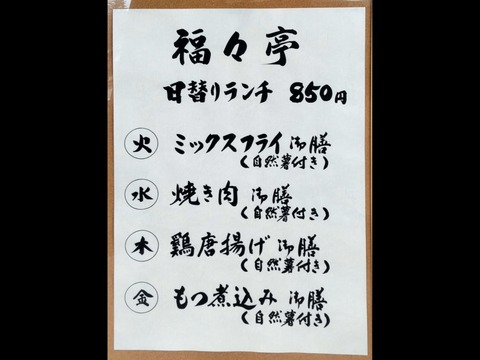 福々亭
日替りランチ 850円
火 ミックスフライ御膳
(自然薯付き)
水 焼き肉 御膳
(自然薯付き)
木 鶏唐揚げ御膳
(自然薯付き)
金 もつ煮込み 御膳
(自然薯付き)